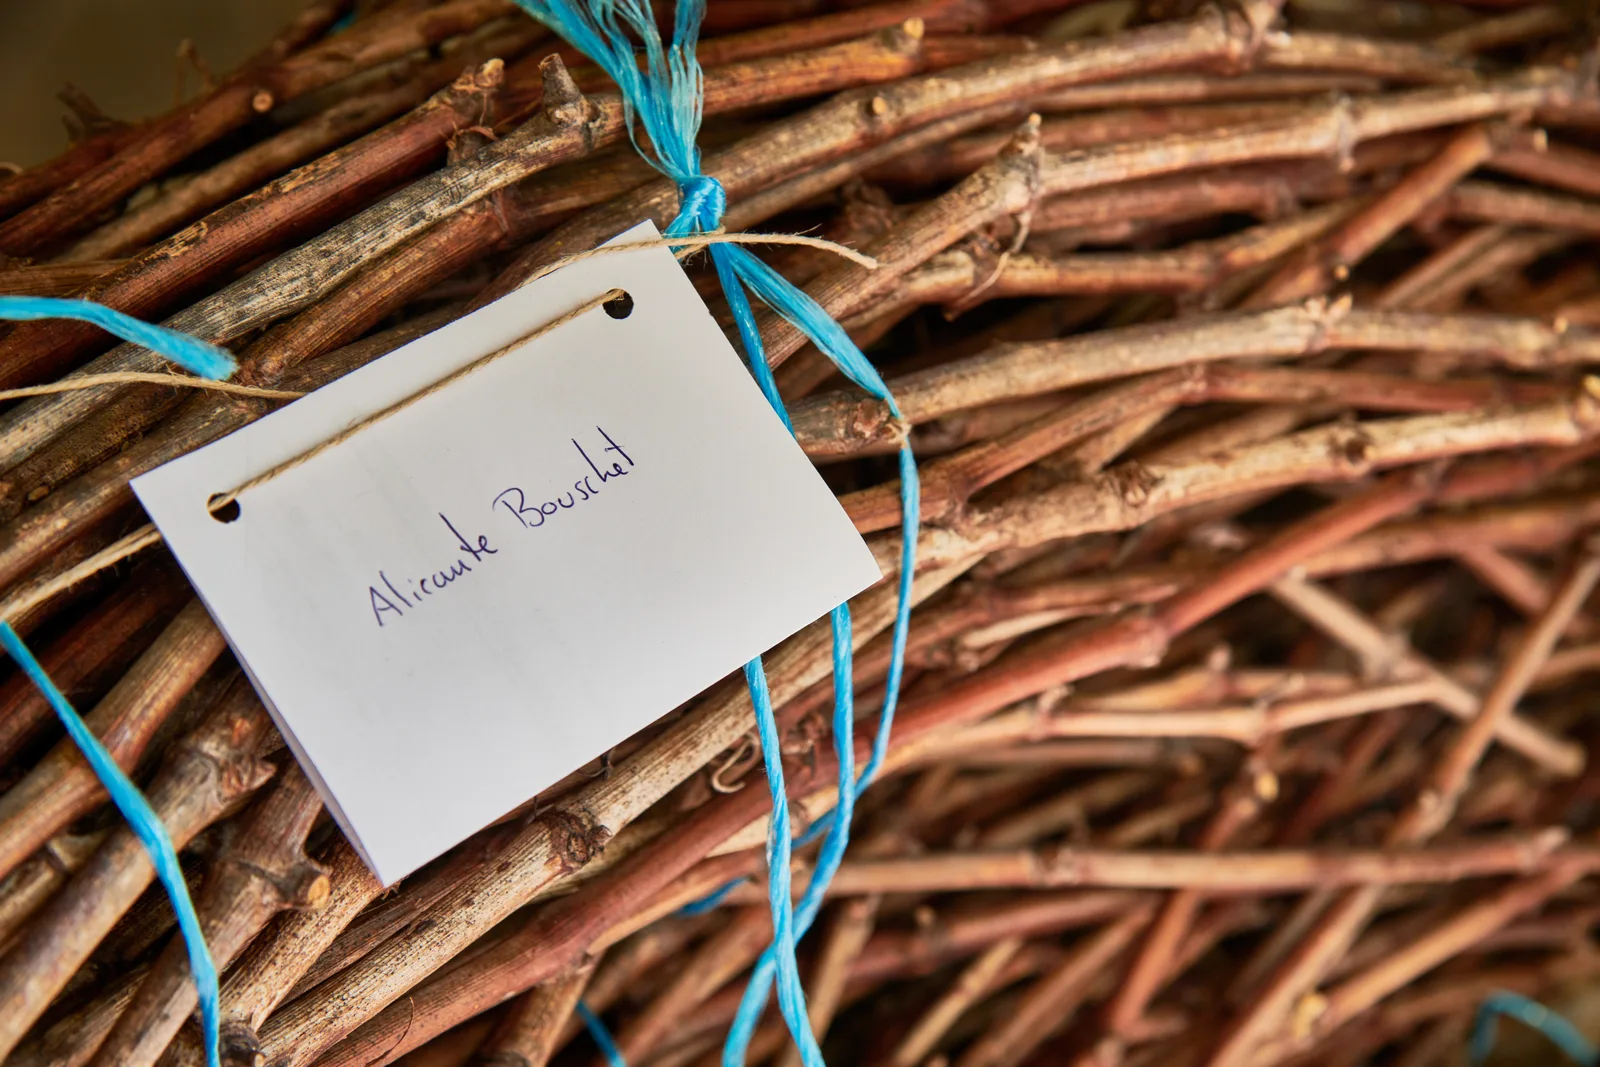 Alicante Bouschet